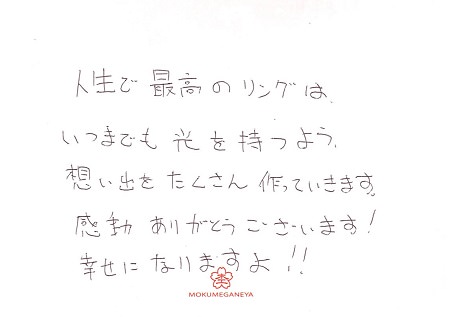 人生で最高のリングは、
いつまでも光を持つよう、
想い出をたくさん作っていきます。
感動ありがとうございます!
幸せになりますよ!!
MOKUMEGANEYA